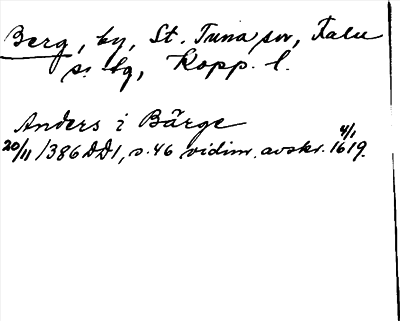 Berg, by, St. Tuna sn, Falu
s. bg, Kopp. l.
Anders i Bärge
20/11 1386 DD1, s. 46 vidim. avskr. 4/1 1619.